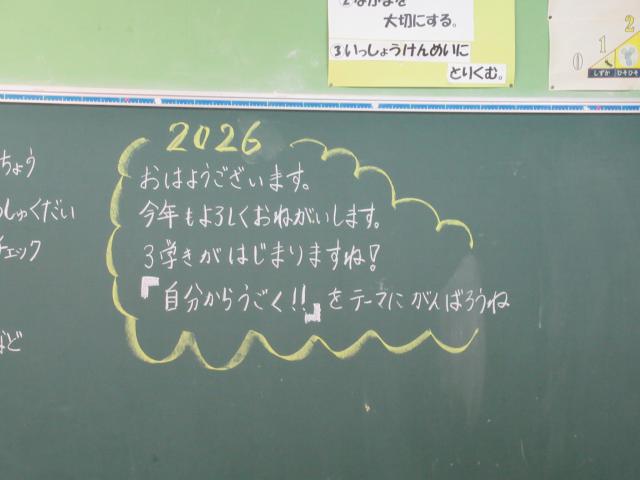 ②なかまを
大切にする。
③いっしょうけんめいに
とりくむ。
0 1 2
しずか ひそひそ
2026
おはようございます。
今年もよろしくおねがいします。
3学きがはじまりますね!
『自分からうごく!!』をテーマにがんばろうね
ちょう
しゅくだい
チェック
など